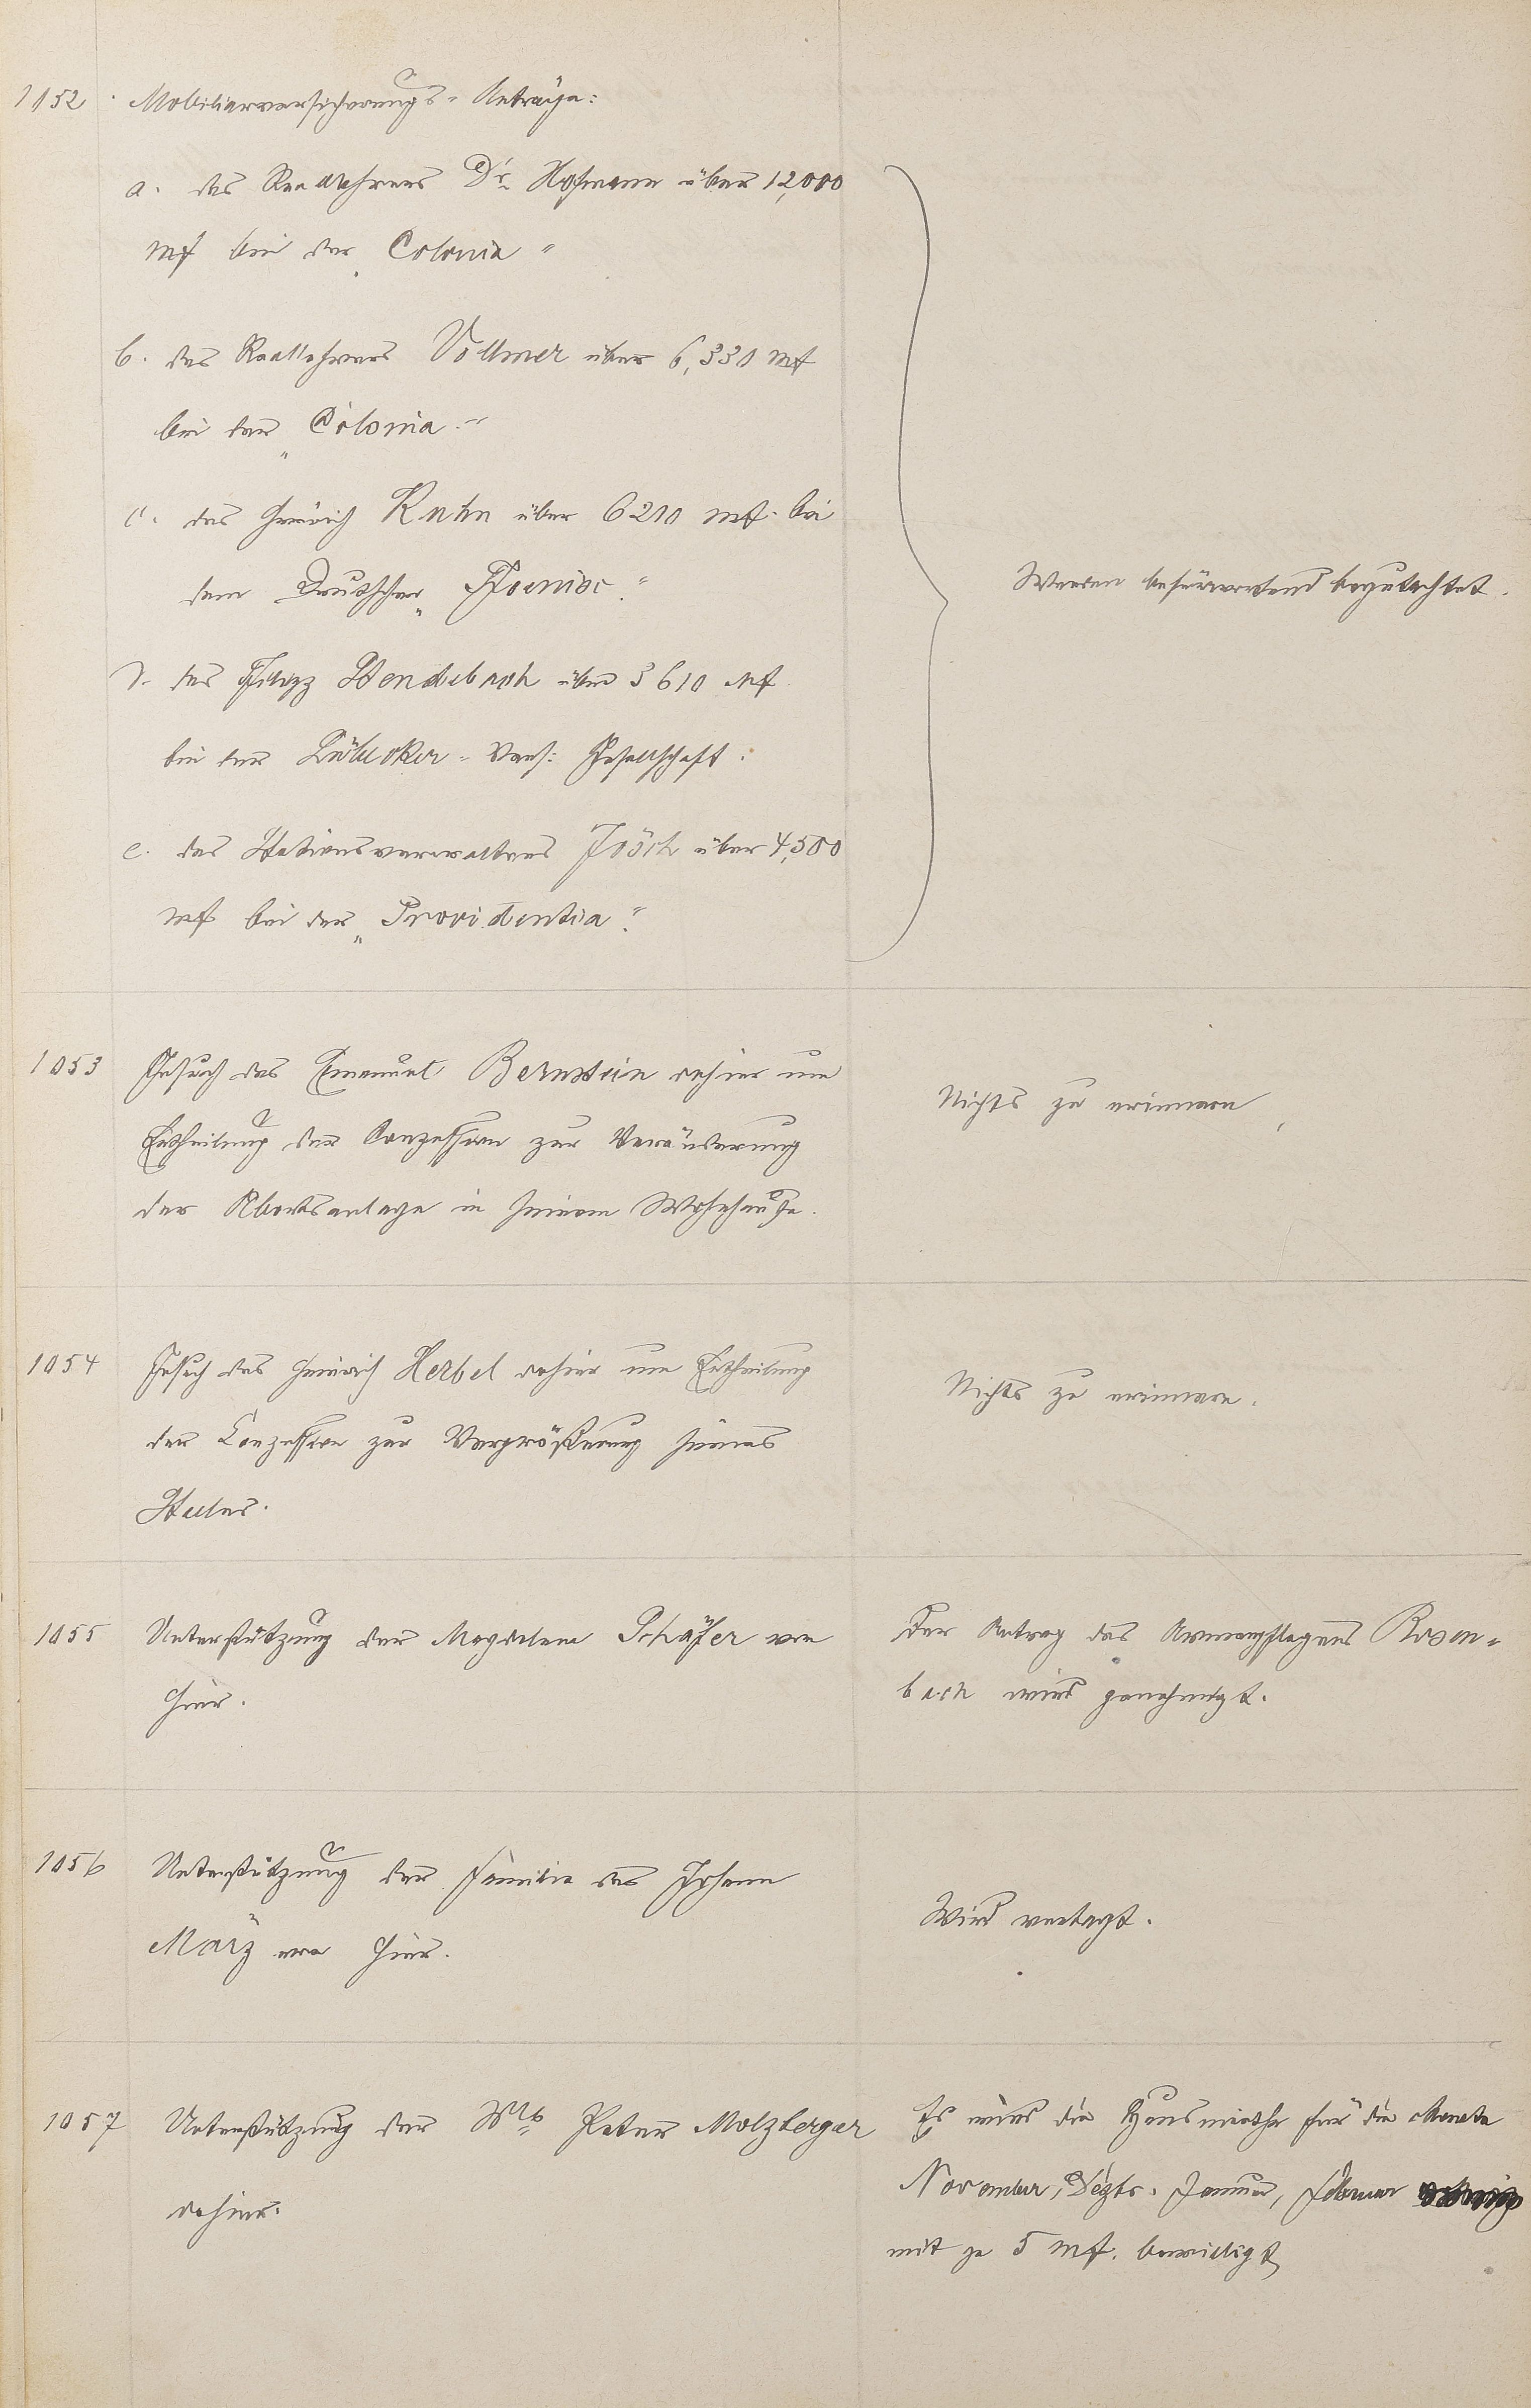 1052 Mobiliarversicherungs-Anträge:
a. des Reallehrers Dr. Hofmann über 12,000
Mk bei der „Colonia"
b. des Reallehrers Vollmer über 6,330 Mk
bei der „Colonia."
c. des Heinrich Kuhn über 6210 Mk. bei
dem Deutscher „Phoenix."
d. des Philipp Stendebach über 3610 Mk
bei der Lübecker-Vers: Gesellschaft.
e. des Stationsverwalters Jösch über 4,500
Mk bei der „Providentia."
Werden befürwortend begutachtet.
1053 Gesuch des Emanuel Bernstein dahier um
Ertheilung der Conzession zur Veränderung
der Abortsanlage in seinem Wohnhause.
Nichts zu erinnern.
1054 Gesuch des Heinrich Herbel dahier um Ertheilung
der Conzession zur Vergrößerung seines
Stalles.
Nichts zu erinnern.
1055 Unterstützung der Magdalena Schäfer von
hier.
Der Antrag des Armenpflegers Rosen-
bach wird genehmigt.
1056 Unterstützung der Familie des Johann
März von hier.
Wird vertagt.
1057 Unterstützung der Wtb Peter Molzberger
dahier.
Es wird die Hausmiethe für die Monate
November, Dezbr. Januar, Februar
mit je 5 Mk. bewilligt